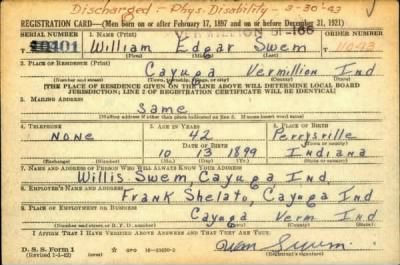 Discharged - Phys. Disability - 3-30-43
REGISTRATION CARD—(Men born on or after February 17, 1897 and on or before December 31, 1921)
SERIAL NUMBER 1. NAME (Print) ORDER NUMBER
William Edgar Swem 11043
(First) (Middle) (Last)
2. PLACE OF RESIDENCE (Print)
Cayuga Vermillion Ind
(Number and street) (Town, township, village, or city) (County) (State)
[THE PLACE OF RESIDENCE GIVEN ON THE LINE ABOVE WILL DETERMINE LOCAL BOARD
JURISDICTION; LINE 2 OF REGISTRATION CERTIFICATE WILL BE IDENTICAL]
3. MAILING ADDRESS
Same
[Mailing address if other than place indicated on line 2. If same insert word same]
4. TELEPHONE 5. AGE IN YEARS 6. PLACE OF BIRTH
None 42 Perrysville
DATE OF BIRTH (Town or county)
10 13 1899 Indiana
(Exchange) (Number) (Mo.) (Day) (Yr.) (State or country)
7. NAME AND ADDRESS OF PERSON WHO WILL ALWAYS KNOW YOUR ADDRESS
Willis Swem, Cayuga Ind.
8. EMPLOYER'S NAME AND ADDRESS
Frank Shelato, Cayuga Ind
9. PLACE OF EMPLOYMENT OR BUSINESS
Cayuga Verm Ind
(Number and street or R. F. D. number) (Town) (County) (State)
I AFFIRM THAT I HAVE VERIFIED ABOVE ANSWERS AND THAT THEY ARE TRUE.
D. S. S. Form 1
(Revised 1-1-42) (over) GPO
Wm Swem
(Registrant's signature)